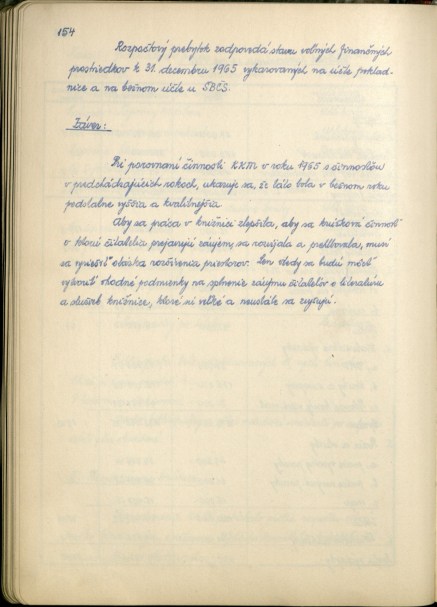 154
Rozpočtový prebytok zodpovedá stavu voľných finančných
prostriedkov k 31. decembru 1965 vykazovaných na účte poklad-
nice a na bežnom účte u ŠBČS.
Záver:
Pri porovnaní činnosti KKM v roku 1965 s činnosťou
v predchádzajúcich rokoch, ukazuje sa, že táto bola v bežnom roku
podstatne vyššia a kvalitnejšia.
Aby sa práca v knižnici zlepšila, aby sa knižková činnosť
o ktorú čitatelia prejavujú záujem, sa rozvíjala a prehlbovala, musí
sa vyriešiť otázka rozšírenia priestorov. Len vtedy sa budú môcť
vytvoriť vhodné podmienky na splnenie záujmu čitateľov o literatúru
a služieb knižnice, ktoré sú veľké a neustále sa zvyšujú.